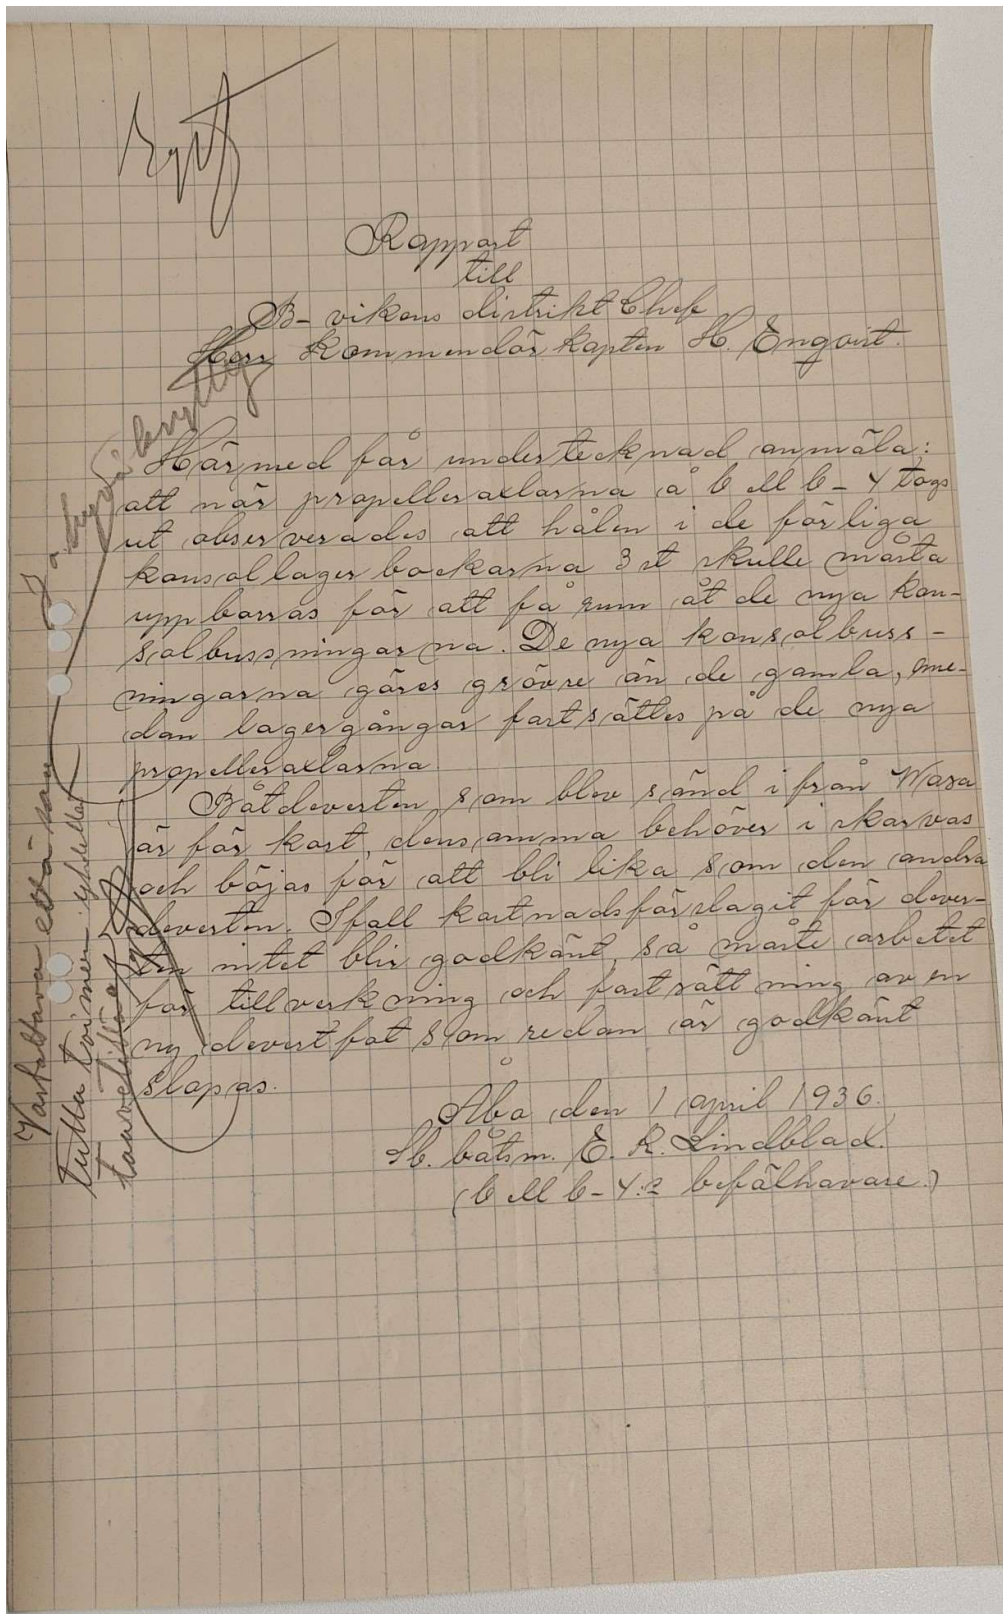 Rappart
till
B- vikens distrikt Chef
Herr Kommendör kapten H. Engvist.
Härmed får undertecknad anmäla:
att när propelleraxlarna å C M b - 4 togs
ut observerades att hålen i de förliga
konsollager bockarna 3 st skulle måsta
uppborras för att få rum åt de nya kon-
solbussningarna. De nya konsolbuss-
ningarna göres grövre än de gamla, me-
dan lagergångar fartsättes på de nya
propelleraxlarna.
Båtdeverten, som blev sänd i från Wasa
är för kort, densamma behöver i skarvas
och böjas för att bli lika som den andra
deverten. Ifall kostnadsförslagit för dever-
ten intet blir godkänt, så måste arbetet
för tillverkning och fortsättning av en
ny devertfot som redan är godkänt
slopas.
Åbo den 1 april 1936.
Sb. båtsm. E. R. Lindblad.
(C M b - 4:s befälhavare.)
Vastattava että